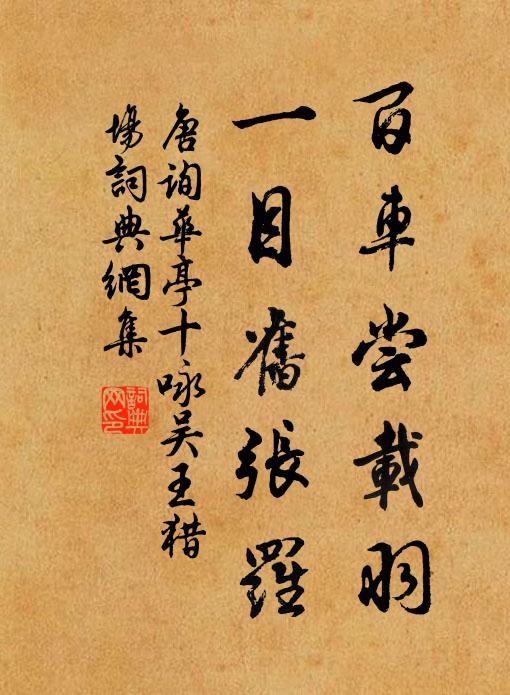 百車尝載羽
一目舊張羅
唐询華亭十咏吴王猎
場詞典網集
詞典
网印